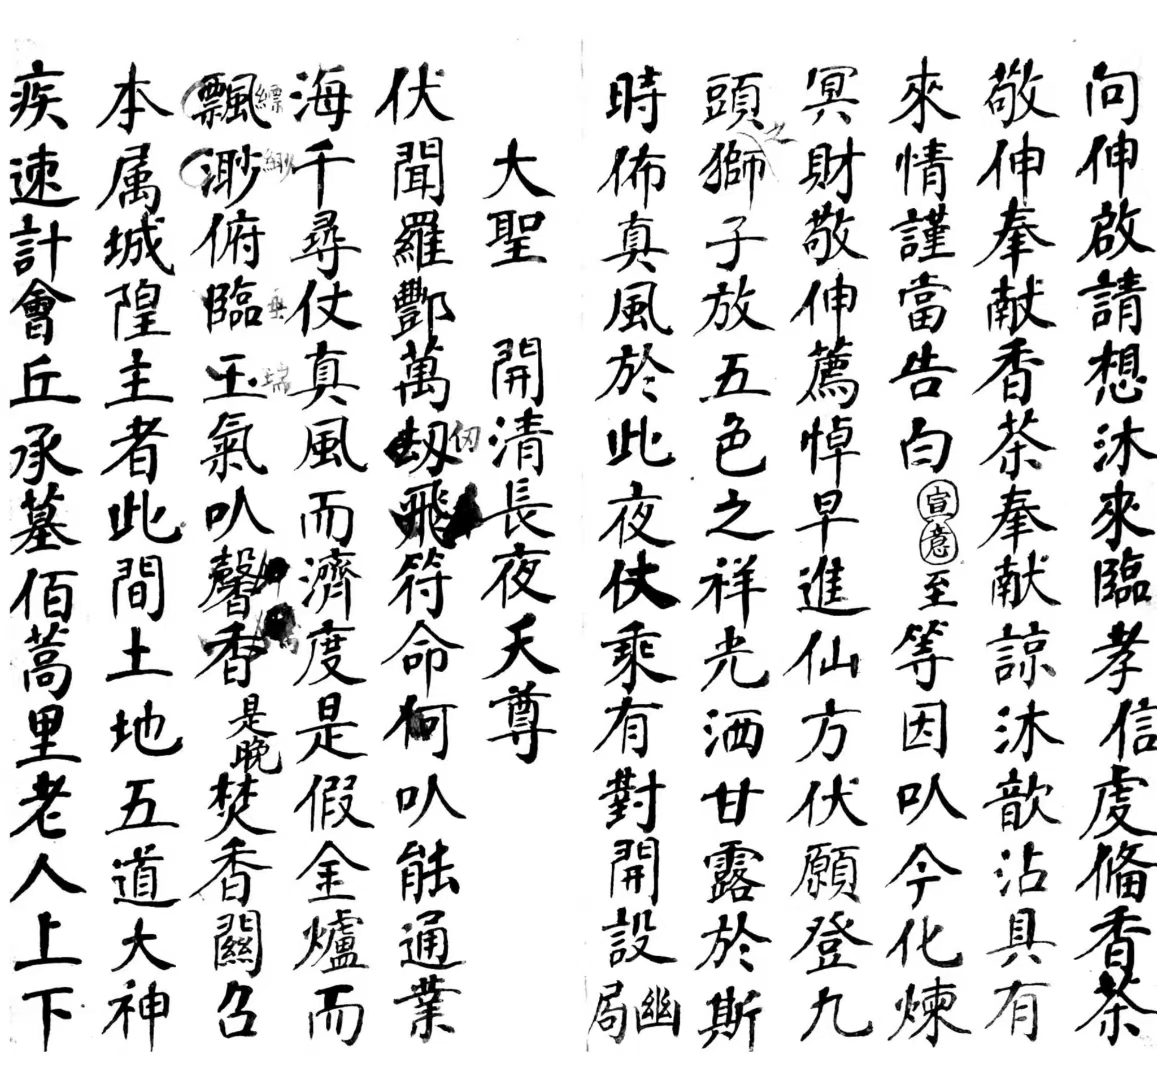 向伸啟請想沐來臨孝信虔偹香茶
敬伸奉献香茶奉献諒沐歆沾具有
來情謹當告白宣意至等因叺今化煉
冥財敬伸薦悼早進仙方伏願登九
頭獅子放五色之祥光洒甘露於斯
時佈真風於此夜仗乘有對開設幽局
大聖 開清長夜天尊
伏聞羅酆萬刼仞飛符命何叺能通業
海千尋仗真風而濟度是假金爐而
飄縹渺緲俯臨垂玉瑞氣叺馨香是晚焚香關召
本属城隍主者此間土地五道大神
疾速計會丘承墓佰蒿里老人上下